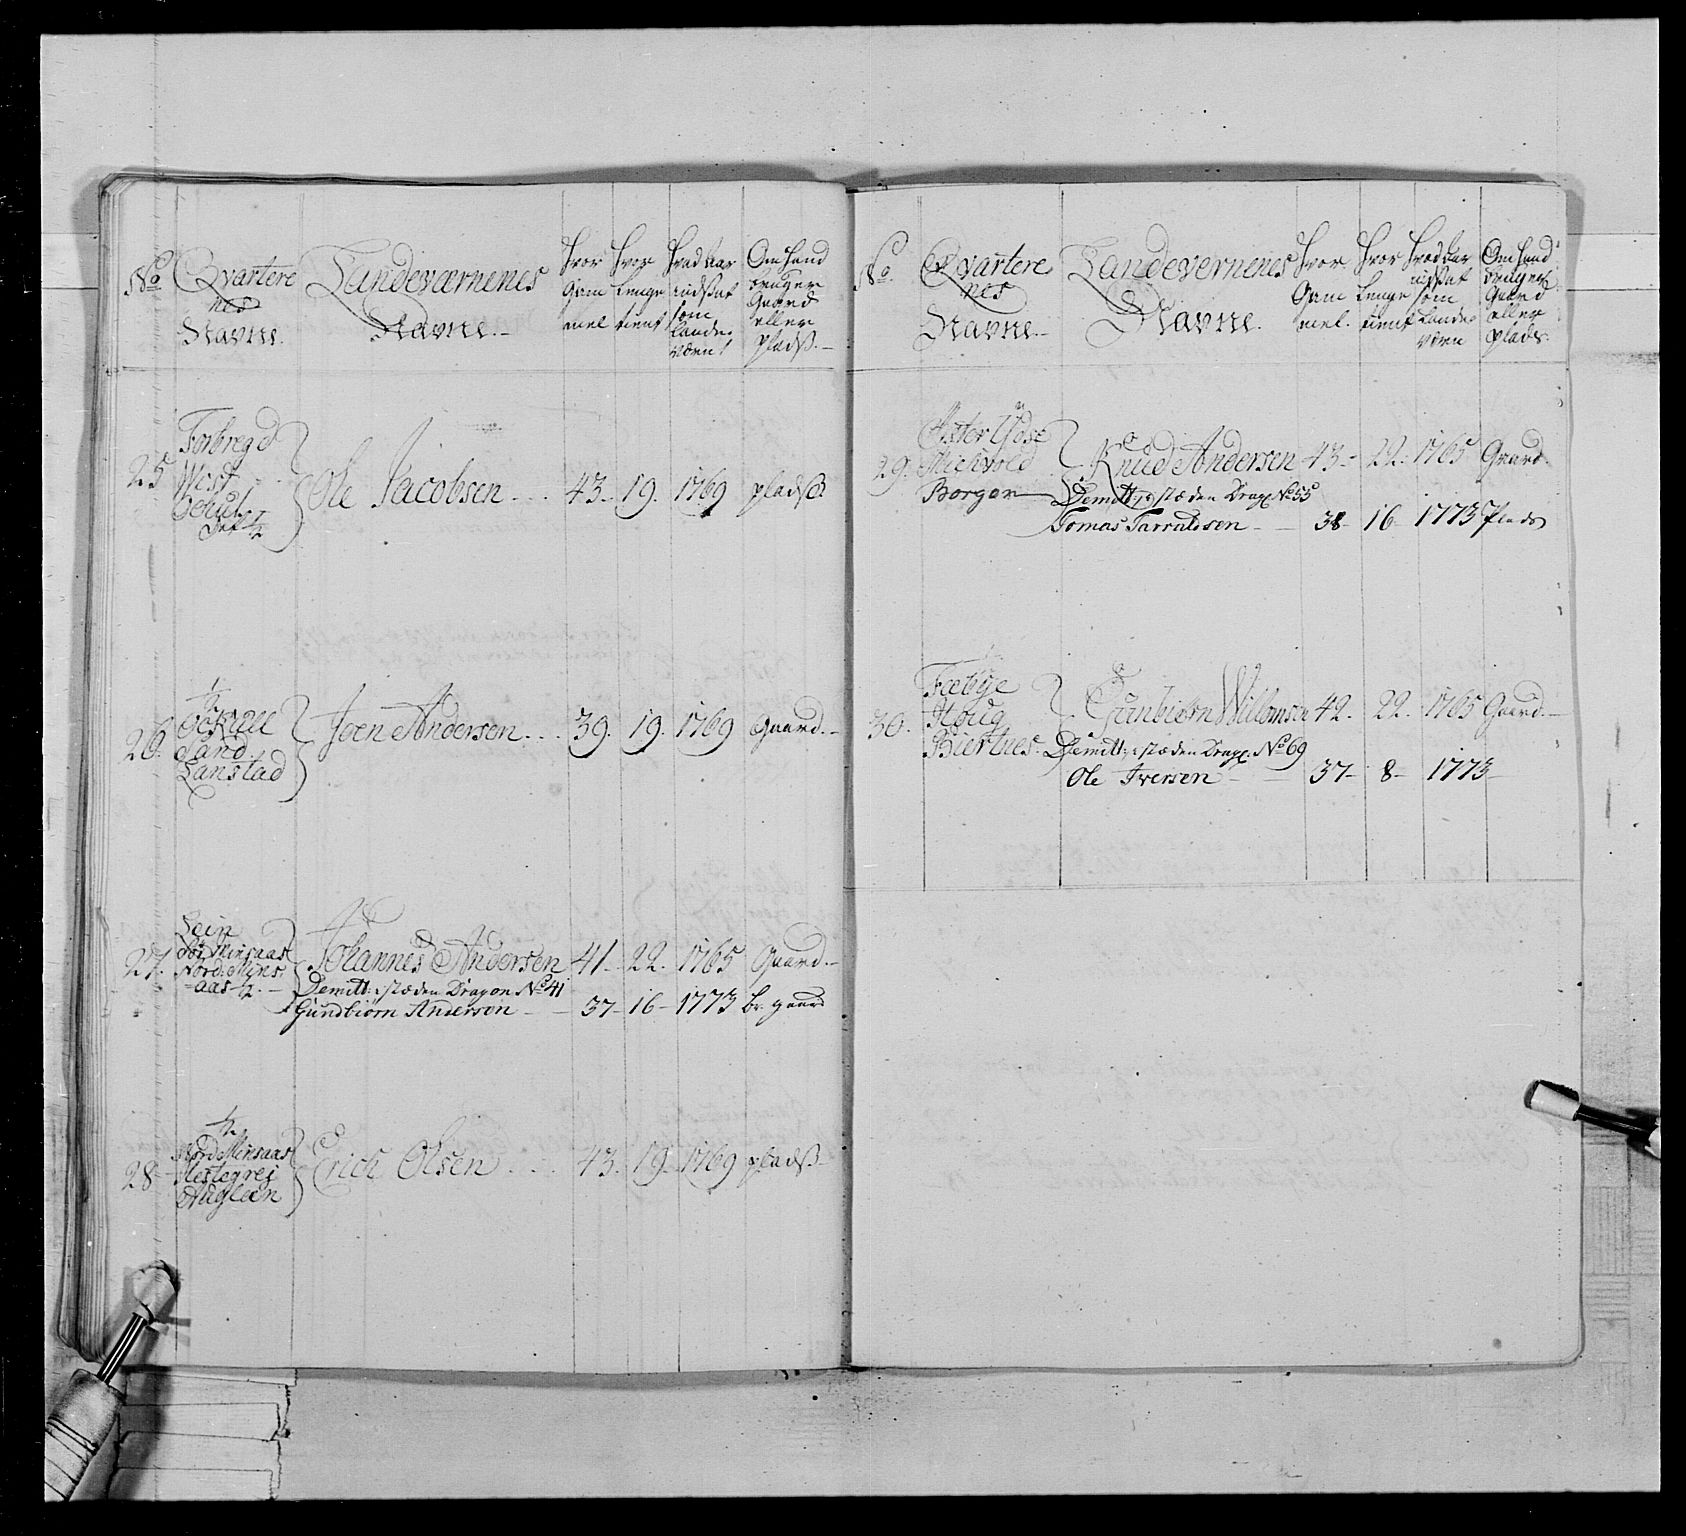 No
Qvartere
nes
Navne.
Landeværnenes
Navne.
Hvor
Gam
mel
Hvor
Lenge
tient
Hvad Aar
udsat
som
Lande-
værn
Om hand
bruger
Gaard
eller
pladß.
25
Forbregd
West
1/2
Ole Jacobsen
43.
19.
1769
pladß.
26.
1/2
Sand
Lanstad
Joen Andersen
39.
19.
1769
gaard.
27.
Lein
Minsaas
Nord: Mins
aas 1/2
Johannes Andersen
41
22.
1765
Gaard.
Demitt: i stæden Dragon No 41
Gundbiørn Andersen
37
16
1773
br. gaard
28
1/2
Nord Minsaas
Erich Olsen
43.
19.
1769
pladß
No
Qvartere
nes
Navne.
Landevernenes
Navne.
Hvor
Gam
mel.
Hvor
Lenge
tient
Hvad Aar
udsat
som
Lande-
værn
Om hand
bruger
Gaard
eller
plads.
29.
Øster
Michvold
Borgen
Knud Andersen
43
22.
1765
Gaard.
Demitt: i stæden Drag: No 55
Tomas Tarraldsen
38
16
1773
Plads
30.
Fæbye
Houg
Biertnes.
Gunbiørn Willomsen
42.
22.
1765
Gaard.
Demitt: i stæden Drag: No 69
Ole Iversen
37
8
1773